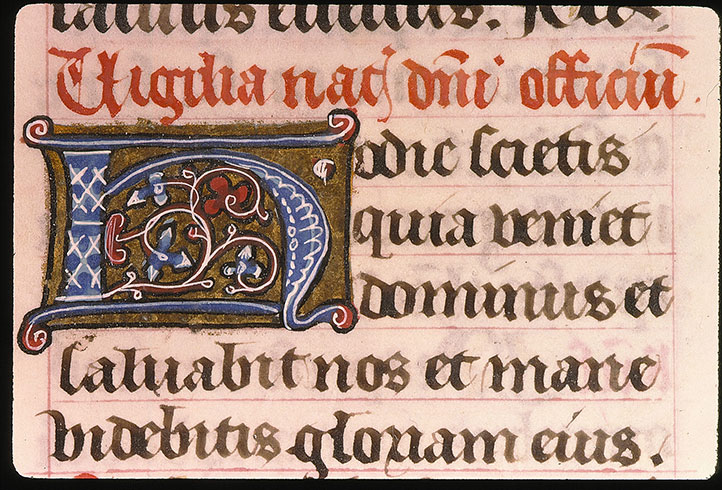 Uigilia nat' dni officiu.
Hodie scietis
quia veniet
dominus et
saluabit nos et mane
videbitis gloriam eius.